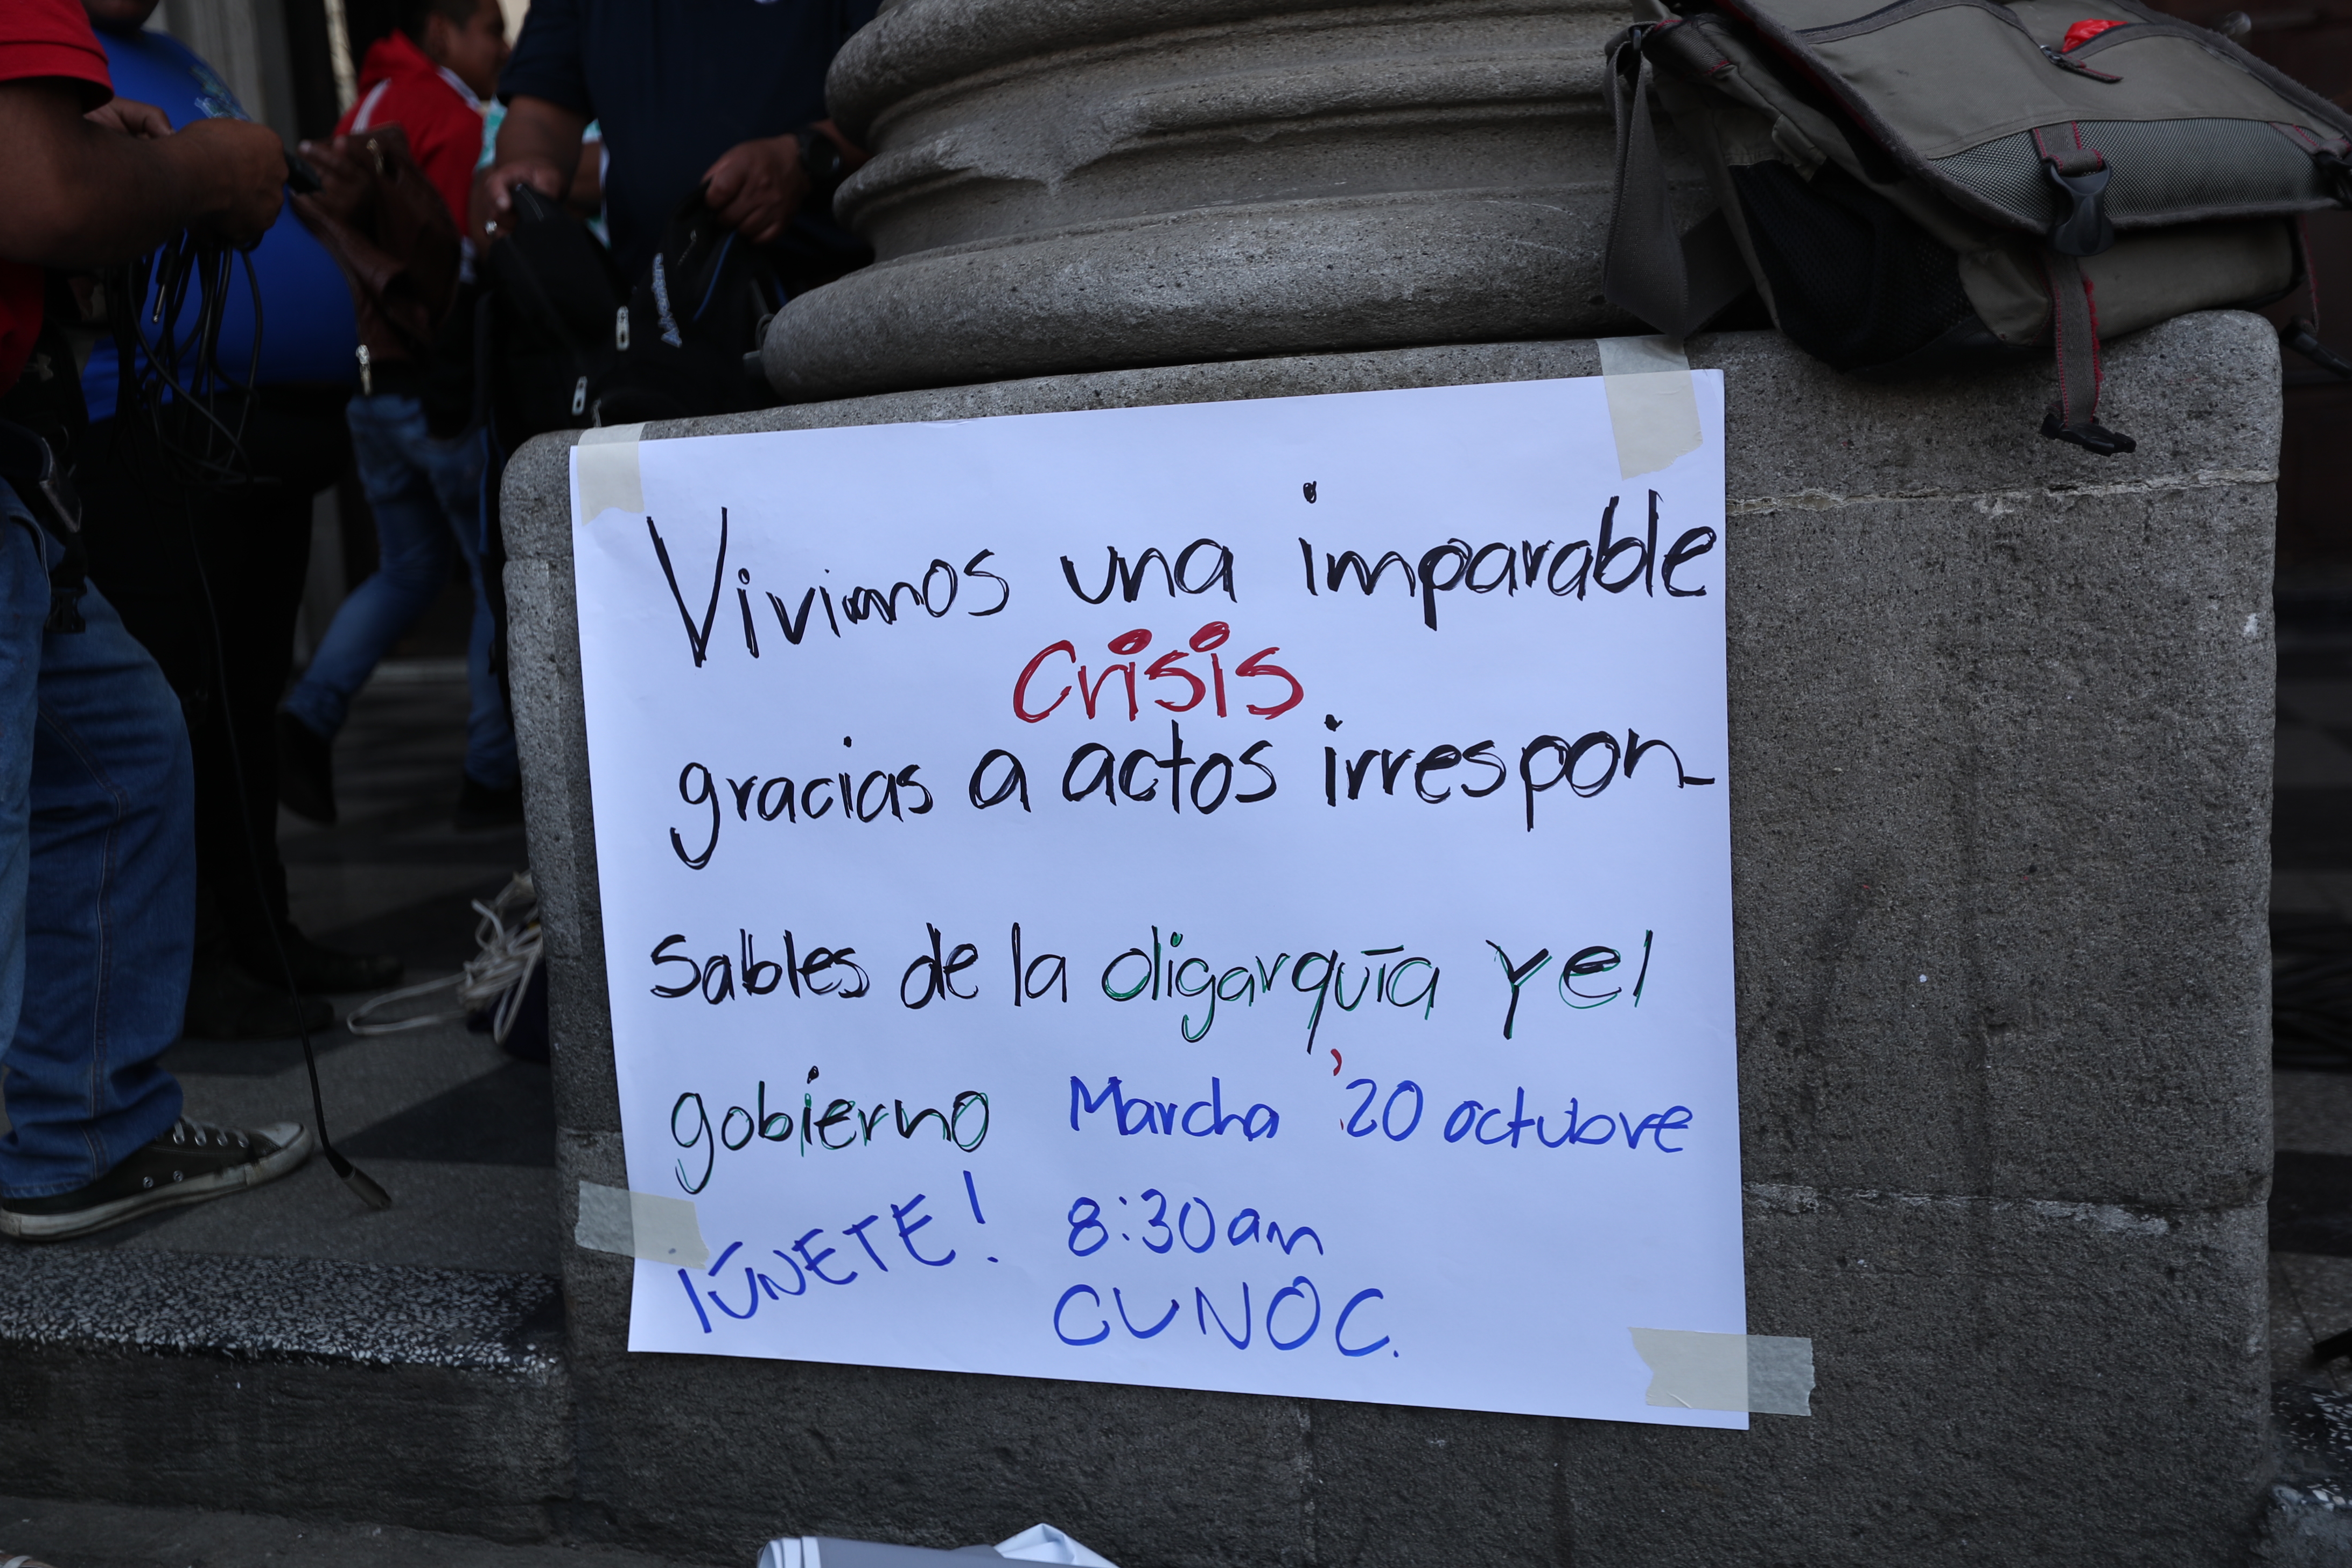 Vivimos una imparable
Crisis
gracias a actos irrespon-
sables de la oligarquía y el
gobierno Marcha '20 octubre
¡ÚNETE! 8:30am
CUNOC.